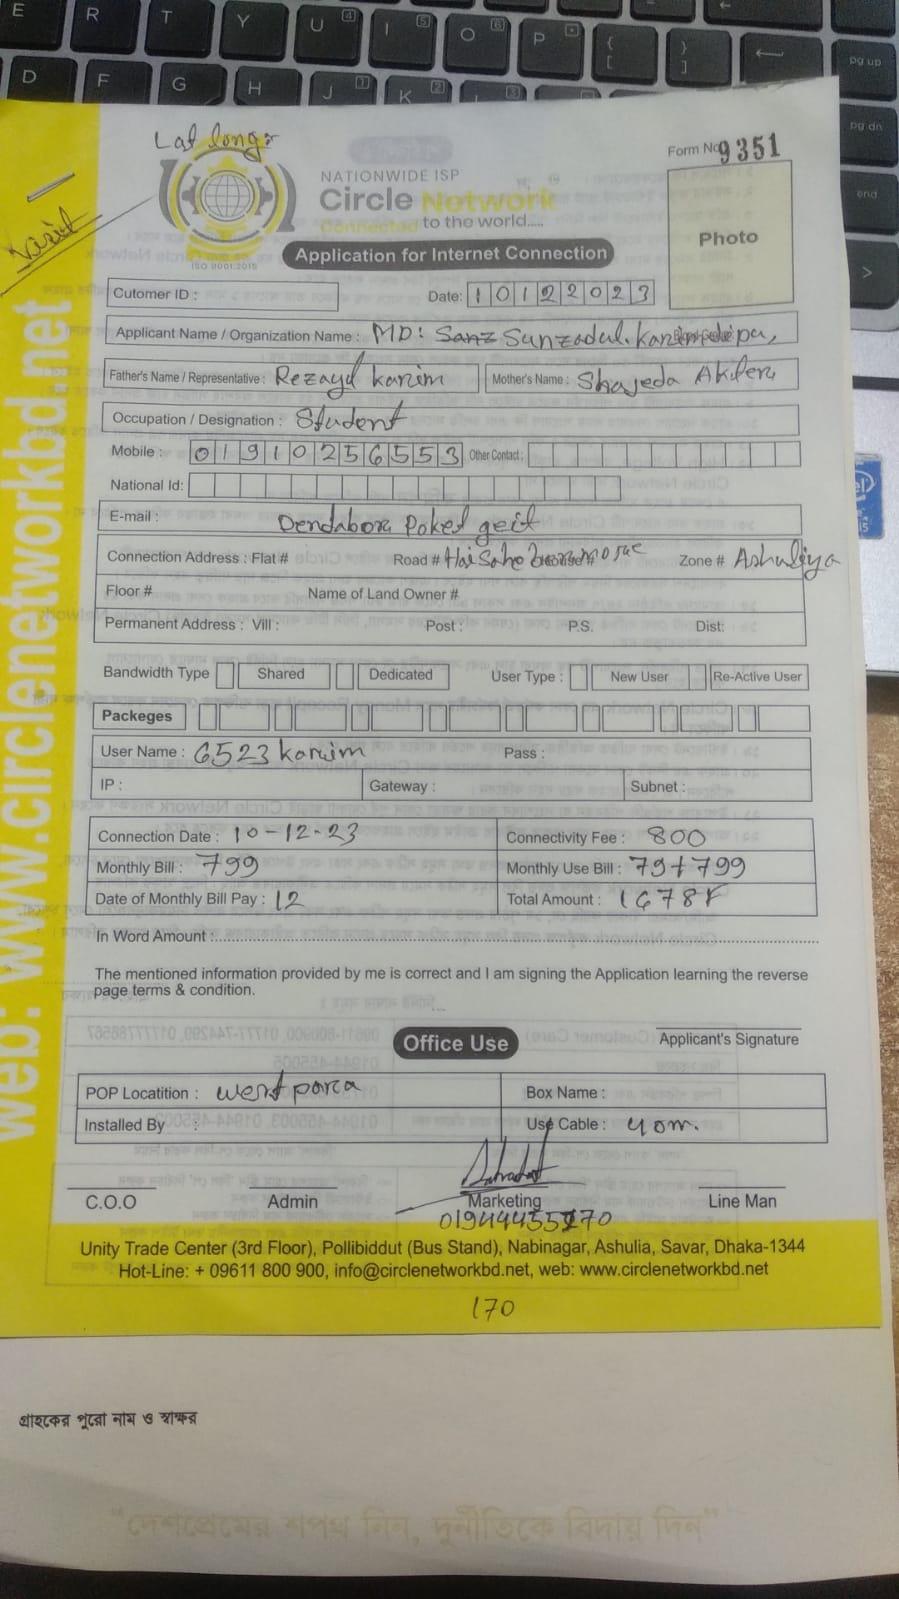 Lat long:
Form No 9351
NATIONWIDE ISP
Circle Network
Connected to the world.....
ISO 9001:2015
Application for Internet Connection
Photo
Visit
Cutomer ID :
Date: 10122023
Applicant Name / Organization Name : MD: Sunzadul. Karim
Father's Name / Representative : Rezayd karim
Mother's Name : Shajeda
Occupation / Designation : Student
Mobile : 01910256553 Other Contact :
National Id:
E-mail :
Dendabora Poket geit
Connection Address : Flat # Road # Zone # Ashuliya
Floor # Name of Land Owner #
Permanent Address : Vill : Post : P.S. Dist:
Bandwidth Type Shared Dedicated User Type : New User Re-Active User
Packeges
User Name : 6523karim Pass :
IP : Gateway : Subnet :
Connection Date : 10-12-23 Connectivity Fee : 800
Monthly Bill : 799 Monthly Use Bill : 79+799
Date of Monthly Bill Pay : 12 Total Amount :
In Word Amount :
The mentioned information provided by me is correct and I am signing the Application learning the reverse
page terms & condition.
Applicant's Signature
Office Use
POP Locatition : west para Box Name :
Installed By : Use Cable : 40m.
C.O.O Admin Marketing Line Man
Unity Trade Center (3rd Floor), Pollibiddut (Bus Stand), Nabinagar, Ashulia, Savar, Dhaka-1344
Hot-Line: + 09611 800 900, info@circlenetworkbd.net, web: www.circlenetworkbd.net
170
web: www.circlenetworkbd.net
গ্রাহকের পুরো নাম ও স্বাক্ষর
"দেশপ্রেমের শপথ নিন, দুর্নীতিকে বিদায় দিন"